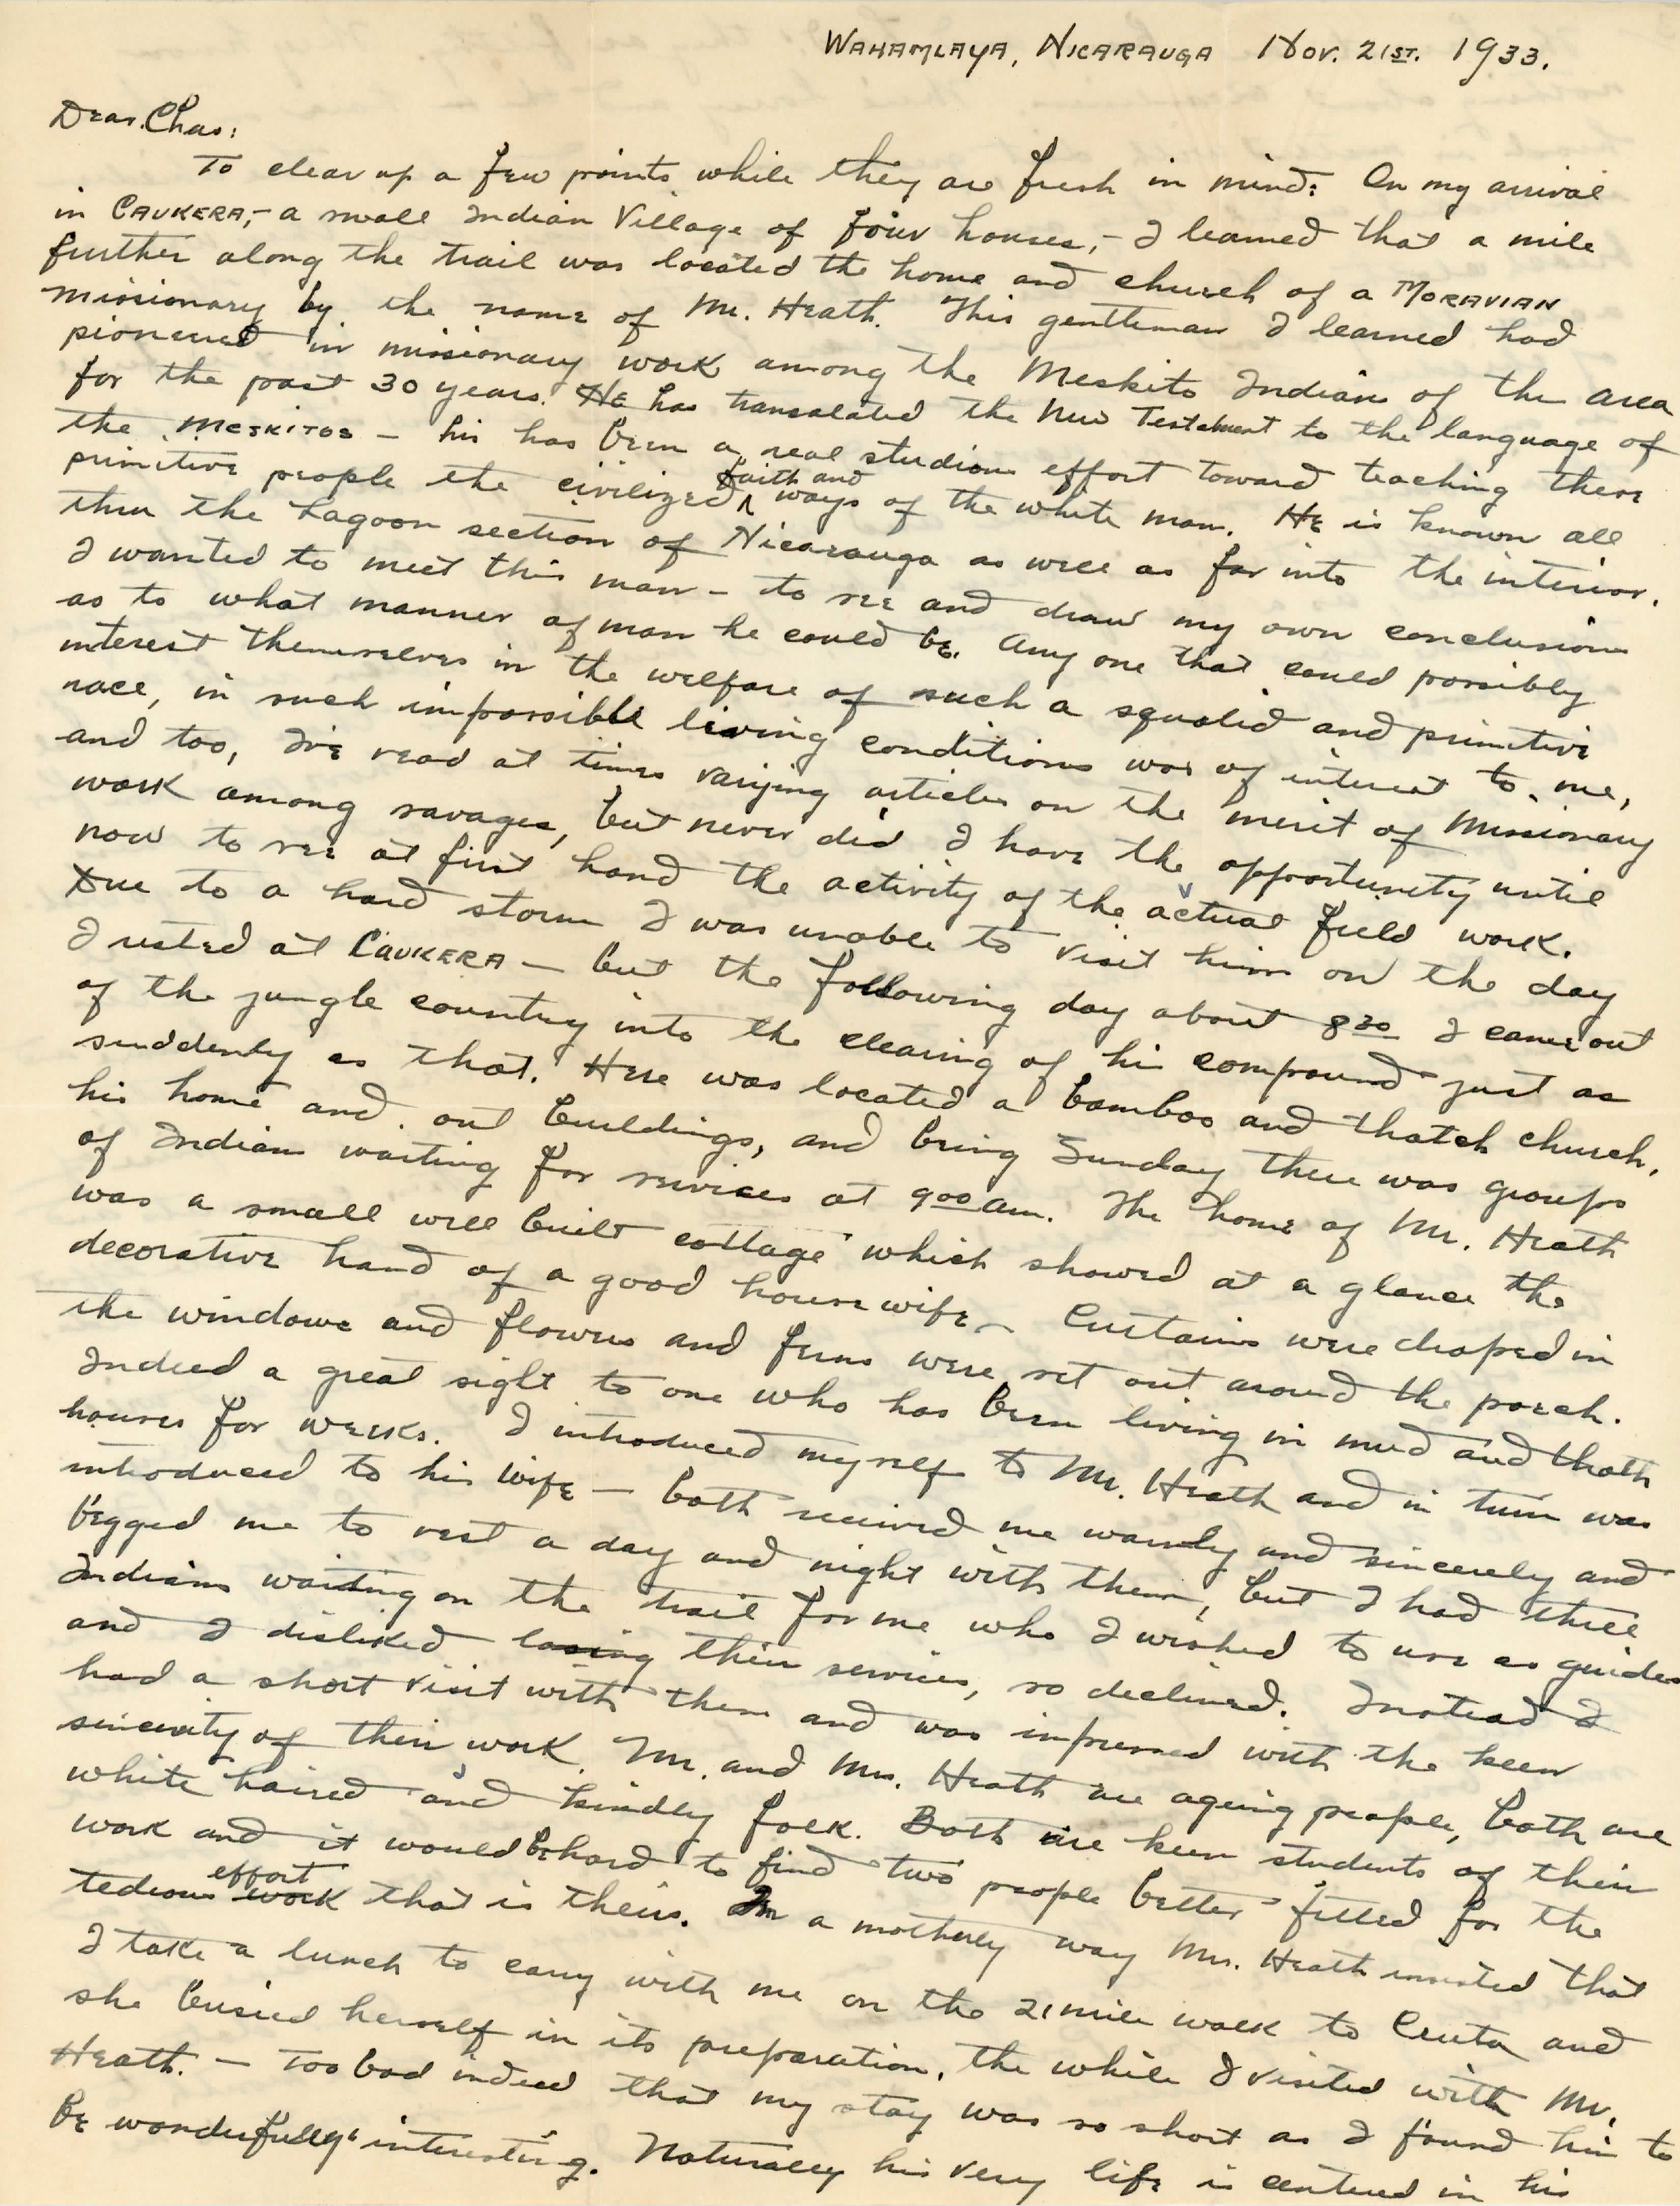 WAHAMLAYA, NICARAUGA Nov. 21ST. 1933.
Dear Chas:
To clear up a few points while they are fresh in mind: On my arrival
in CAUKERA,- a small Indian Village of four houses,- I learned that a mile
further along the trail was located the home and church of a MORAVIAN
missionary by the name of Mr. Heath. This gentleman I learned had
pioneered in missionary work among the Meskito Indians of the area
for the past 30 years. He has transalated the New Testament to the language of
the MESKITOS - his has been a real studious effort toward teaching these
primitive people the civilized faith and ways of the white man. He is known all
thru the Lagoon section of Nicarauga as well as far into the interior.
I wanted to meet this man - to see and draw my own conclusions
as to what manner of man he could be. Any one that could possibly
interest themurselves in the welfare of such a squalid and primitive
race, in such impossible living conditions was of interest to me,
and too, I've read at times varying articles on the merit of Missionary
work among savages, but never did I have the opportunity until
now to see at first hand the activity of the actual field work.
Due to a hard storm I was unable to visit him on the day
I rested at CAUKERA - but the following day about 8 30 I came out
of the jungle country into the clearing of his compound - just as
suddenly as that. Here was located a bamboo and thatch church,
his home and out buildings, and being Sunday there was groups
of Indians waiting for services at 9 00 am. The home of Mr. Heath
was a small well built cottage which showed at a glance the
decorative hand of a good housewife - Curtains were draped in
the windows and flowers and ferns were set out around the porch.
Indeed a great sight to one who has been living in mud and thatch
houses for weeks. I introduced myself to Mr. Heath and in turn was
introduced to his wife - both received me warmly and sincerely and
begged me to rest a day and night with them, but I had three
Indians waiting on the trail for me who I wished to use as guides
and I disliked losing their services, so declined. Instead I
had a short visit with them and was impressed with the keen
sincerity of their work. Mr. and Mrs. Heath are ageing people, both are
white haired and kindly folk. Both are keen students of their
work and it would be hard to find two people better fitted for the
tedious work effort that is theirs. In a motherly way Mrs. Heath insisted that
I take a lunch to carry with me on the 21 mile walk to Cruta and
she busied herself in its preparation, the while I visited with Mr.
Heath. - Too bad indeed that my stay was so short as I found him to
be wonderfully interesting. Naturally his very life is centered in his